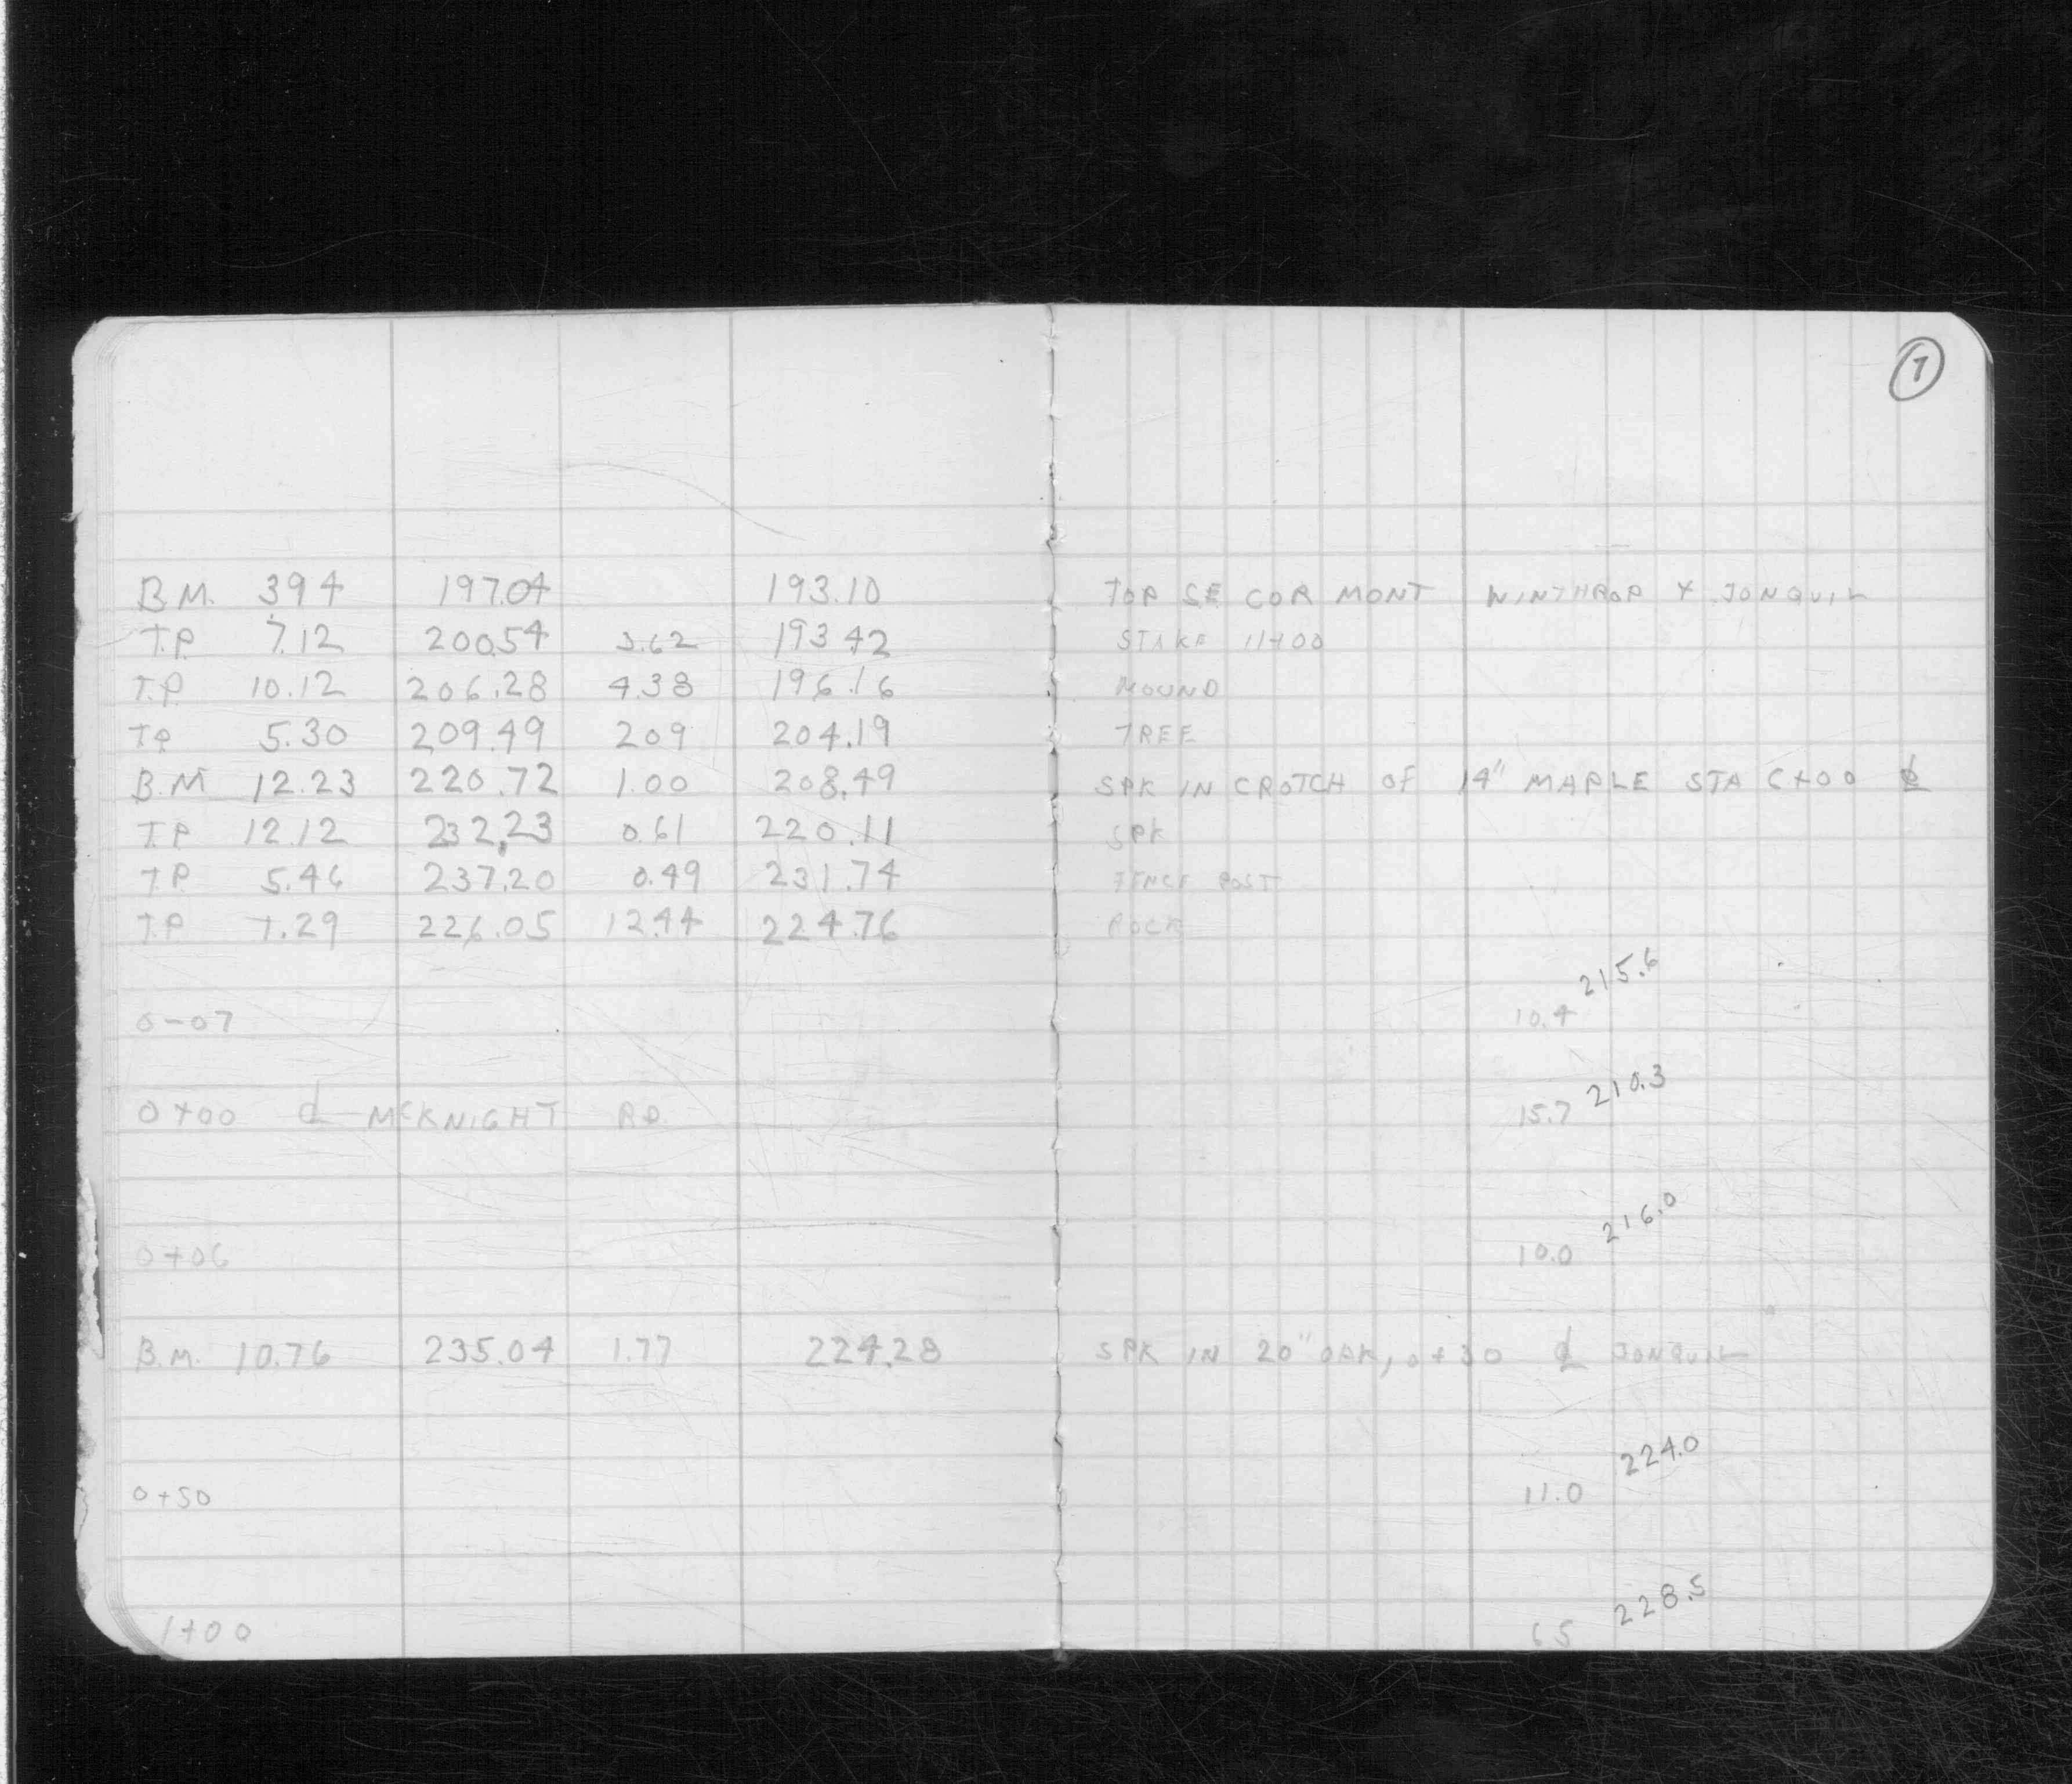 7
B.M. 3.94 197.04 193.10 TOP SE COR MONT WINTHROP & JONQUIL
T.P. 7.12 200.54 3.62 193.42 STAKE 11+00
T.P. 10.12 206.28 4.38 196.16 MOUND
T.P. 5.30 209.49 209 204.19 TREE
B.M. 12.23 220.72 1.00 208.49 SPK IN CROTCH OF 14" MAPLE STA 6+00 ℄
T.P. 12.12 232.23 0.61 220.11 SPK
T.P. 5.46 237.20 0.49 231.74 FENCE POST
T.P. 1.29 226.05 12.44 224.76 ROCK
0-07 10.4 215.6
0+00 ℄ McKNIGHT RD. 15.7 210.3
0+06 10.0 216.0
B.M. 10.76 235.04 1.77 224.28 SPK IN 20" OAK, 0+30 ℄ JONQUIL
0+50 11.0 224.0
1+00 6.5 228.5